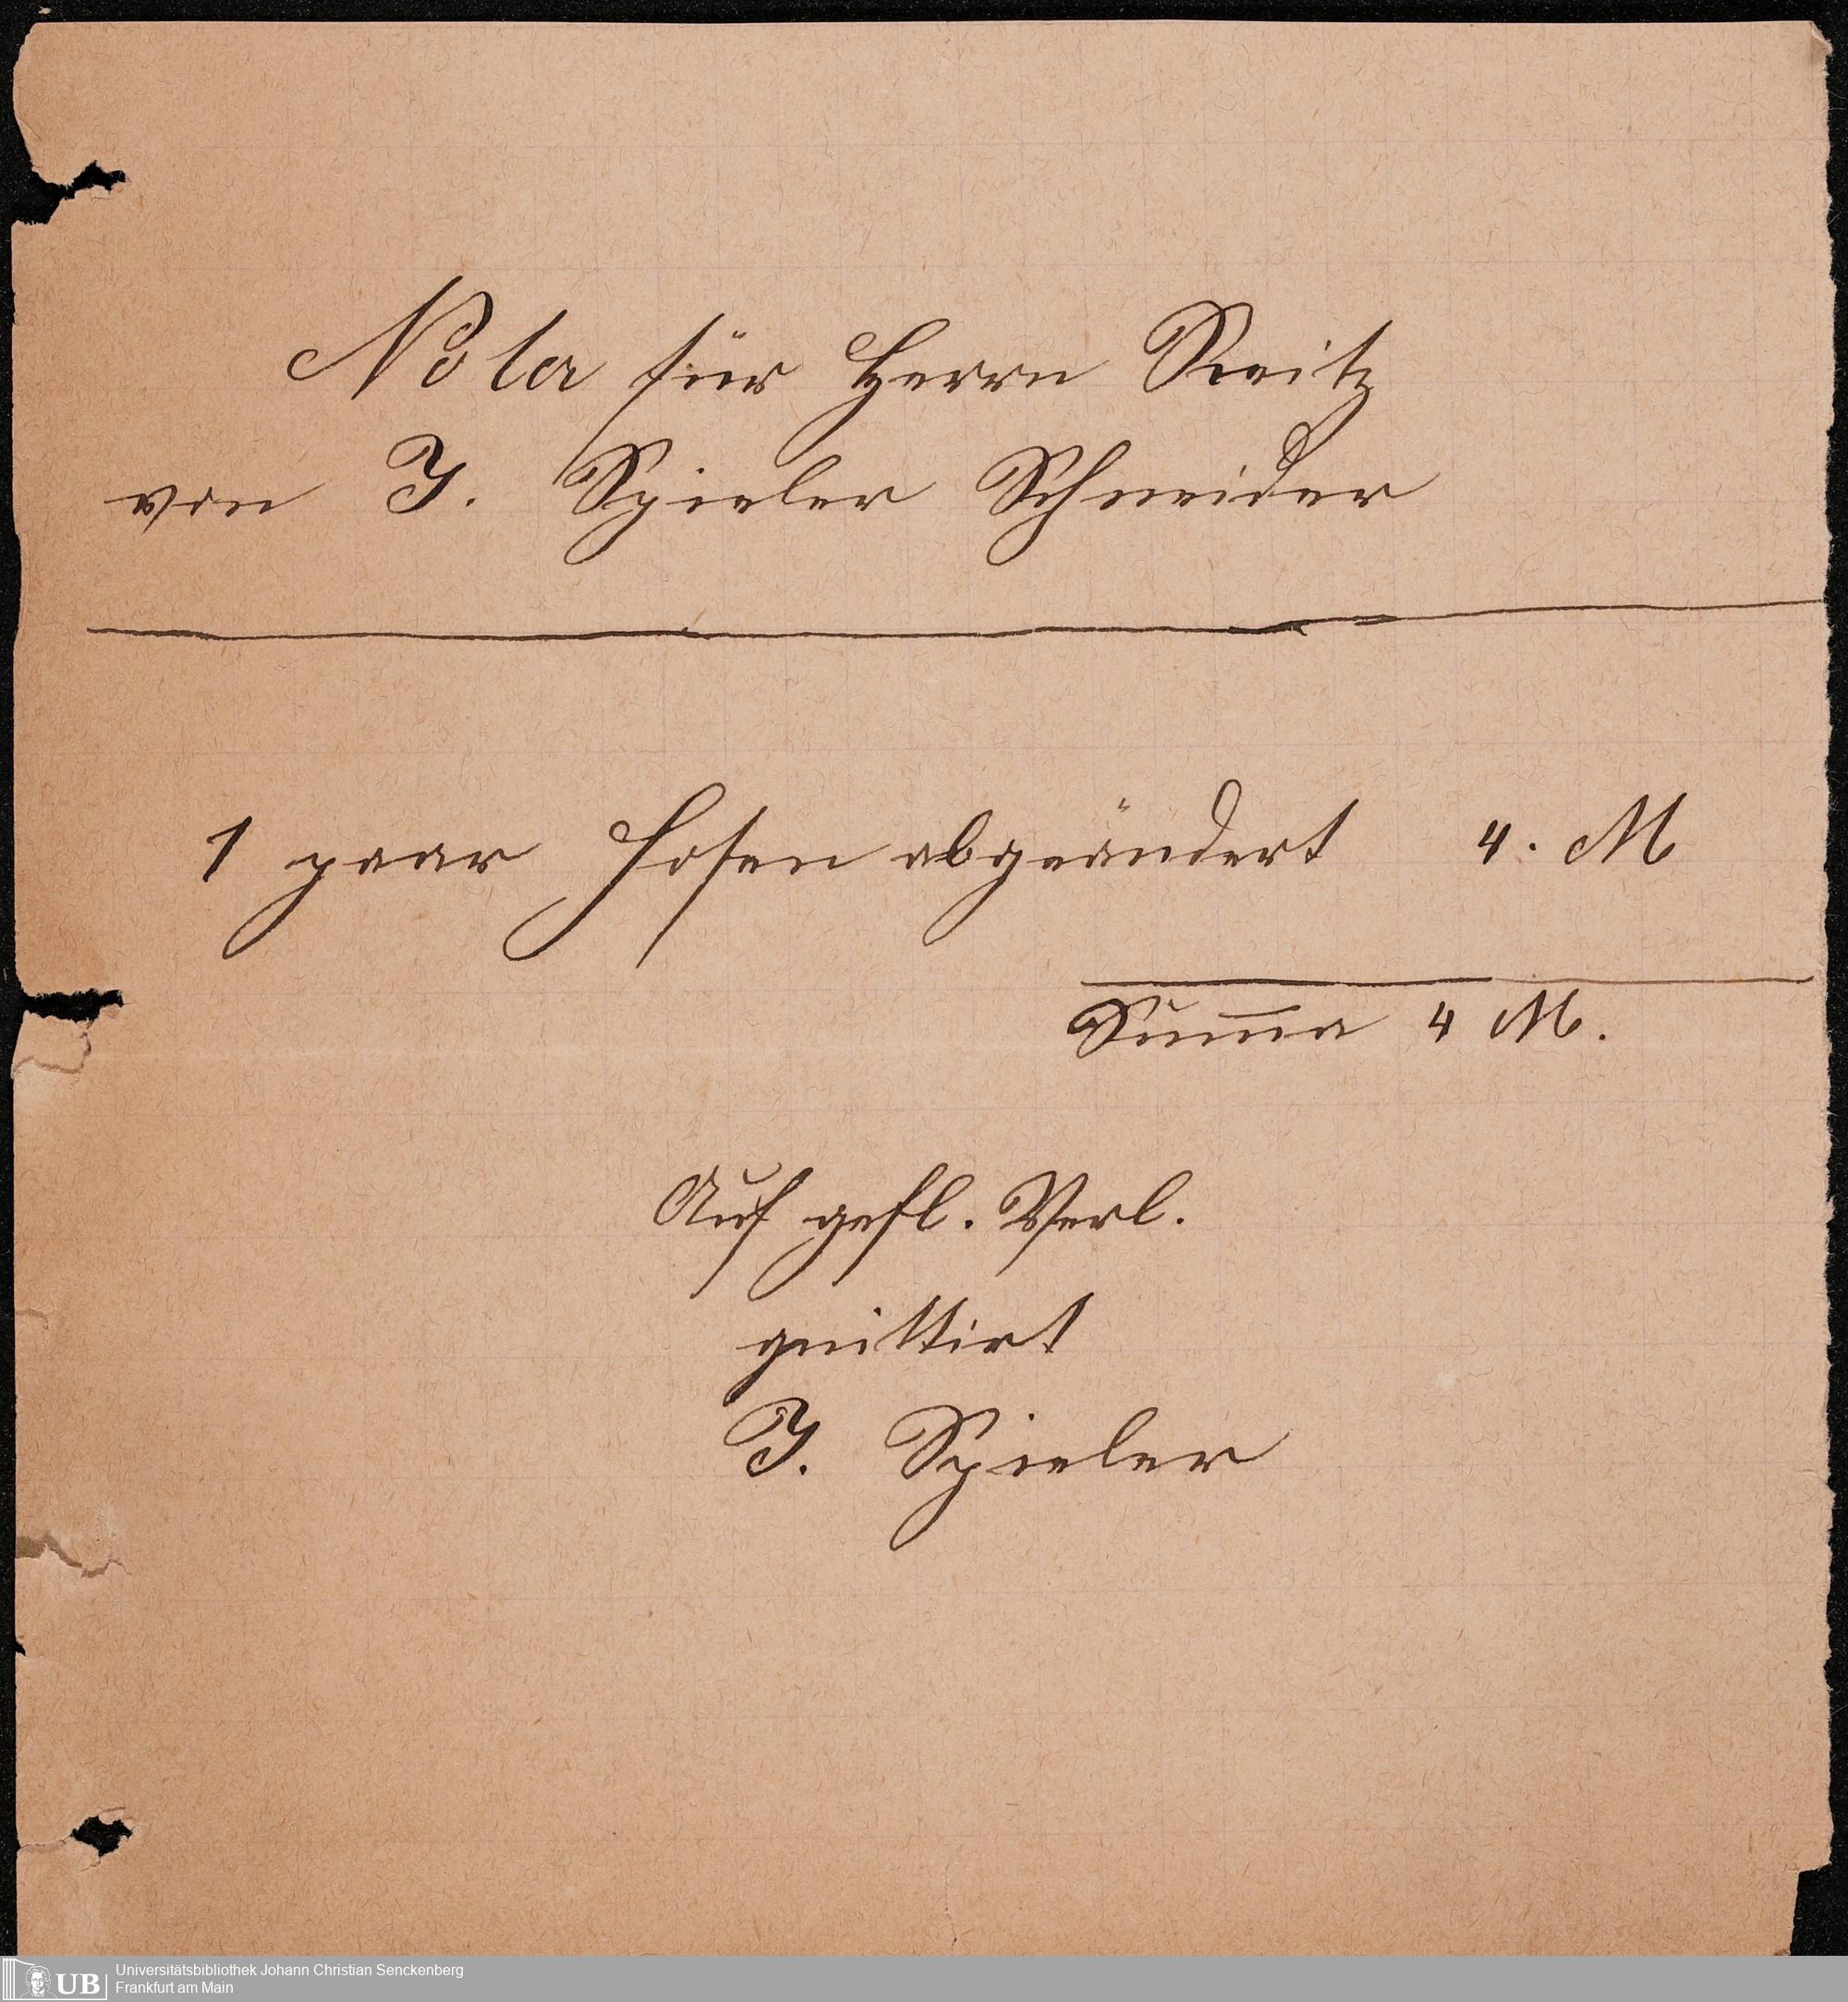 Nota für Herrn Reitz
von J. Spieler Schneider
1 paar Hosen abgeändert 4. M
Sum̅a 4 M.
Auf gefl. Verl.
quittirt
J. Spieler
UB
Universitätsbibliothek Johann Christian Senckenberg
Frankfurt am Main